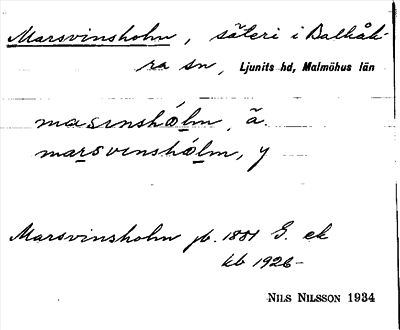 Marsvinsholm, säteri i Balkåk-
ra sn, Ljunits hd, Malmöhus län
masinshólm, ä.
marsvinshólm, y
Marsvinsholm jb. 1881 G. ek
kb 1926-
NILS NILSSON 1934